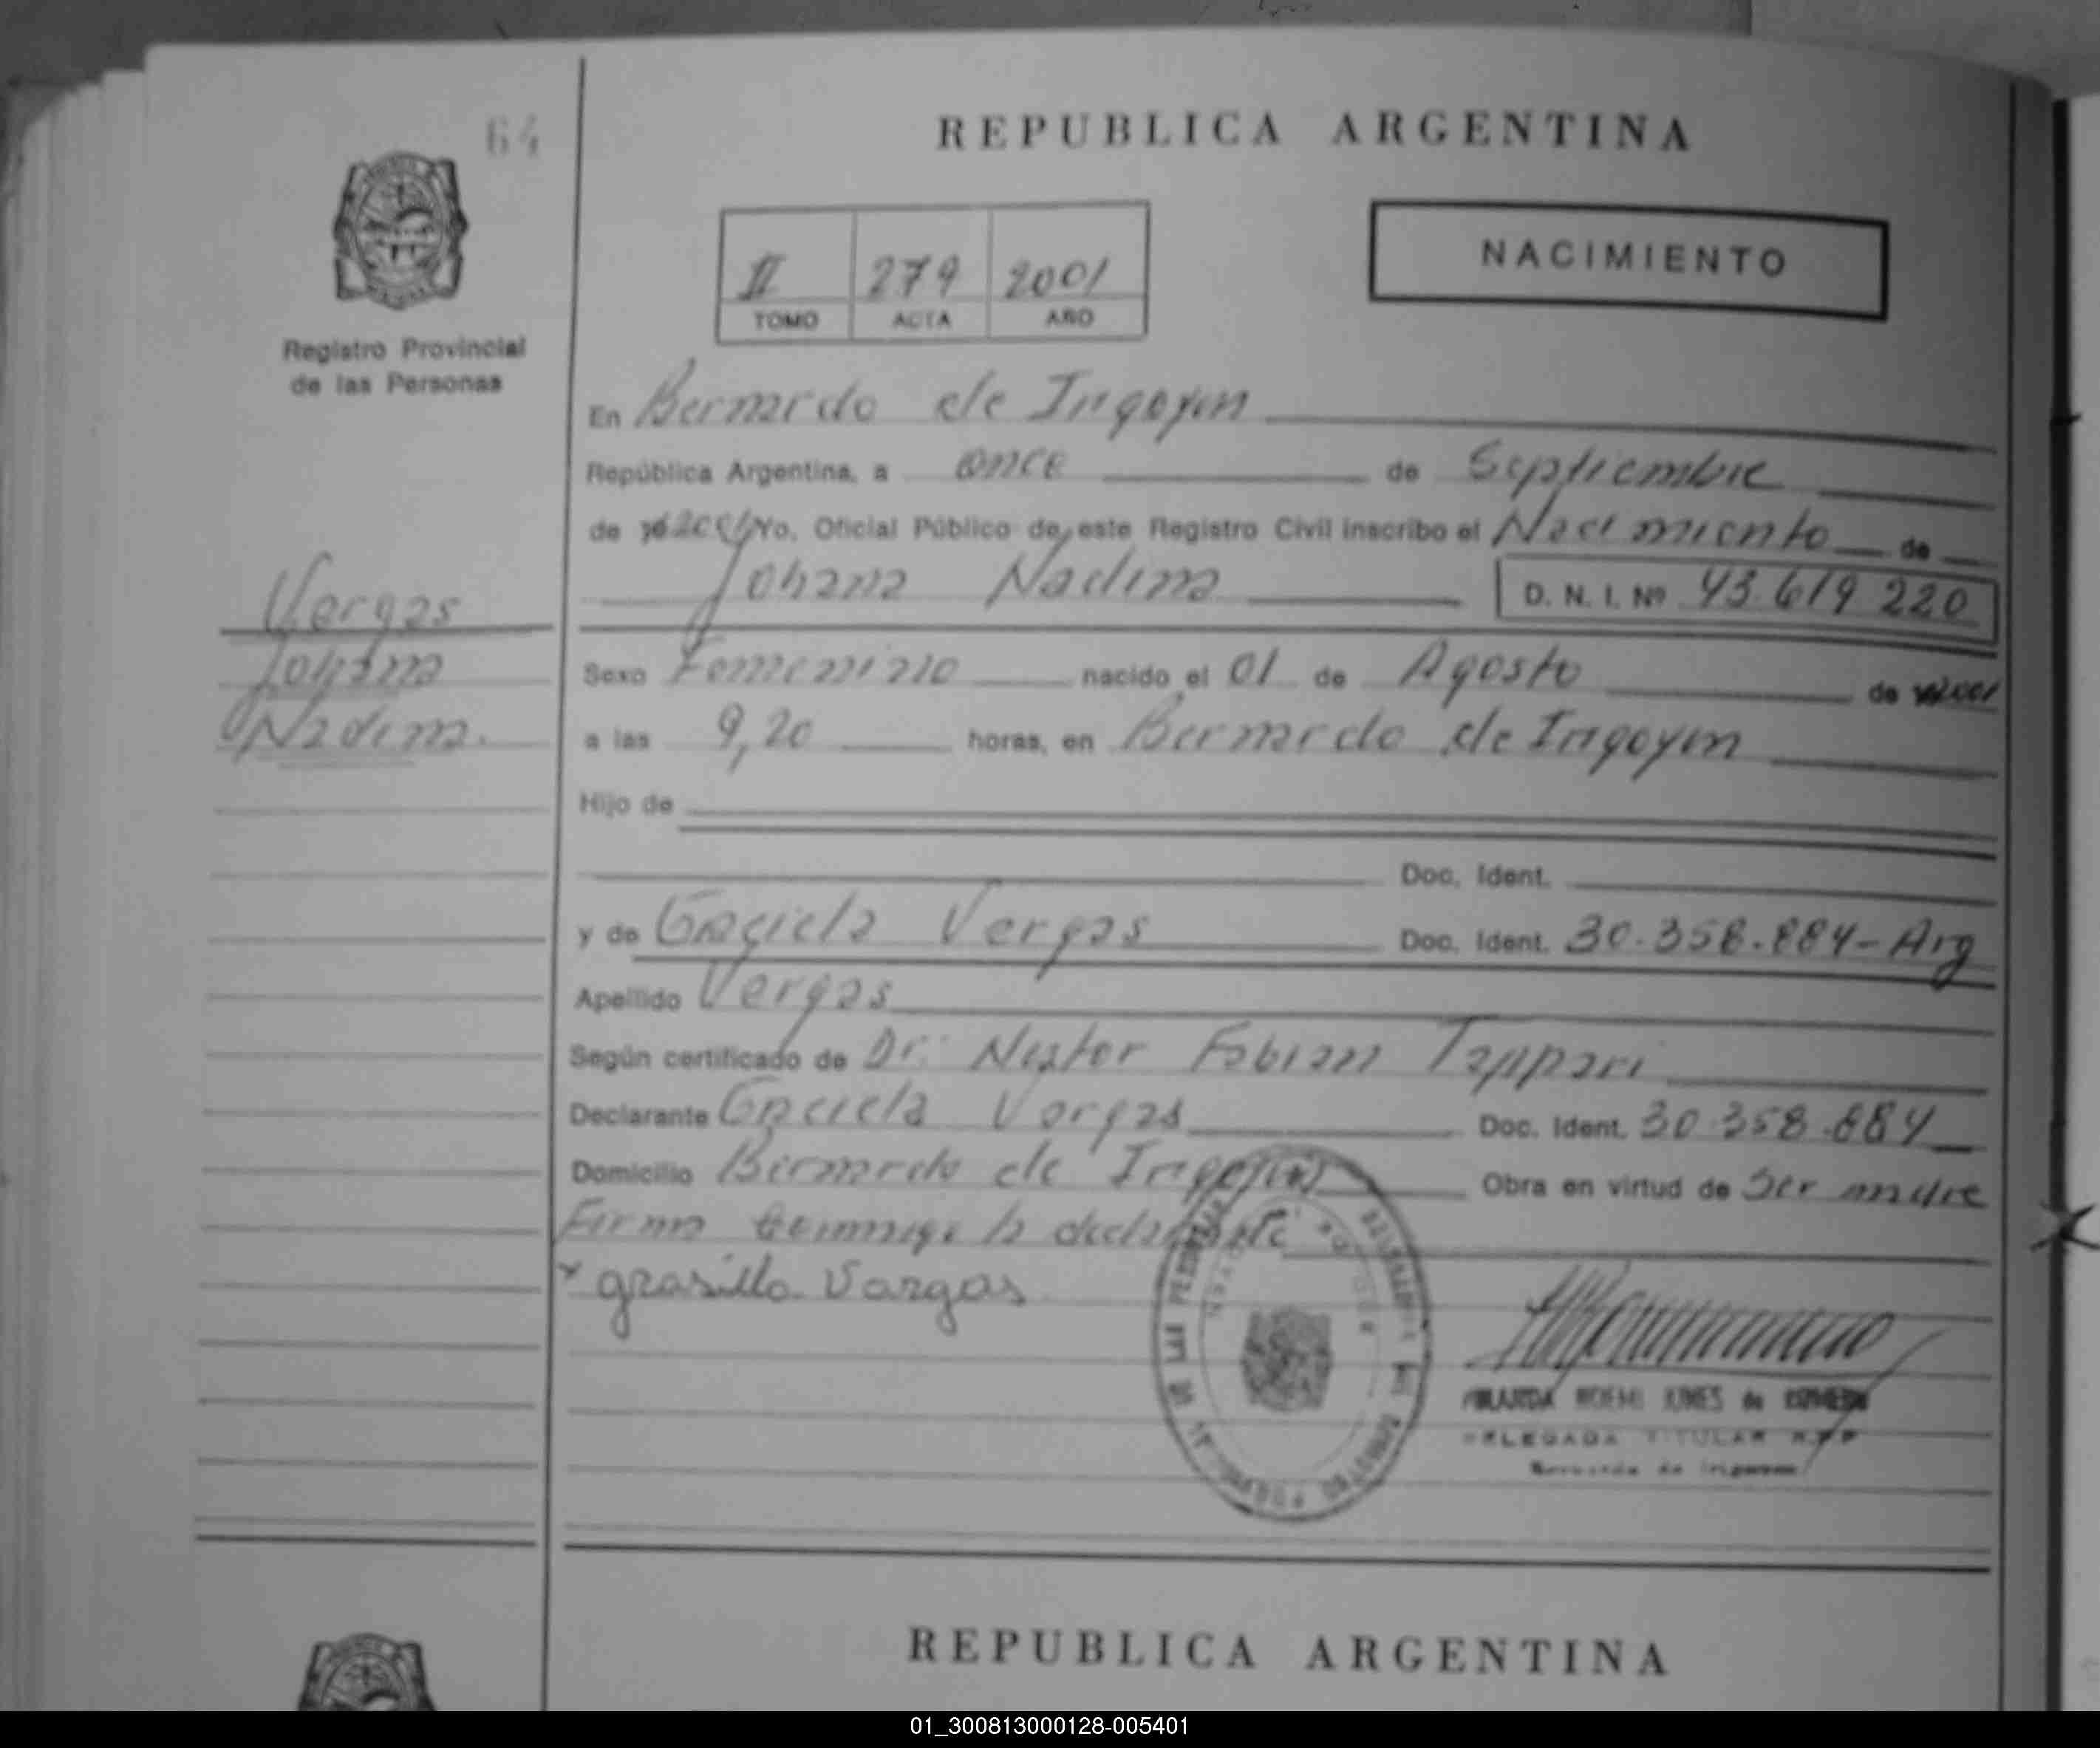 64
REPUBLICA ARGENTINA
NACIMIENTO
II 279 2001
TOMO ACTA AÑO
Registro Provincial
de las Personas
En Bernardo de Irigoyen
República Argentina, a once de Septiembre
de 2001 Yo, Oficial Público de este Registro Civil inscribo el Nacimiento de
Johana Nadina D. N. I. Nº 43.619.220
Vargas
Johana
Nadina.
Sexo Femenino nacido el 01 de Agosto de 2001
a las 9,20 horas, en Bernardo de Irigoyen
Hijo de
Doc. Ident.
y de Graciela Vargas Doc. Ident. 30.358.884-Arg
Apellido Vargas
Según certificado de Dr. Nestor Fabian Tappari
Declarante Graciela Vargas Doc. Ident. 30.358.884
Domicilio Bernardo de Irigoyen Obra en virtud de Ser madre
Firma conmigo la declarante
x grasilla Vargas
NOEMI de
DELEGADA TITULAR R.P.P
Bernardo de Irigoyen
REPUBLICA ARGENTINA
01_300813000128-005401